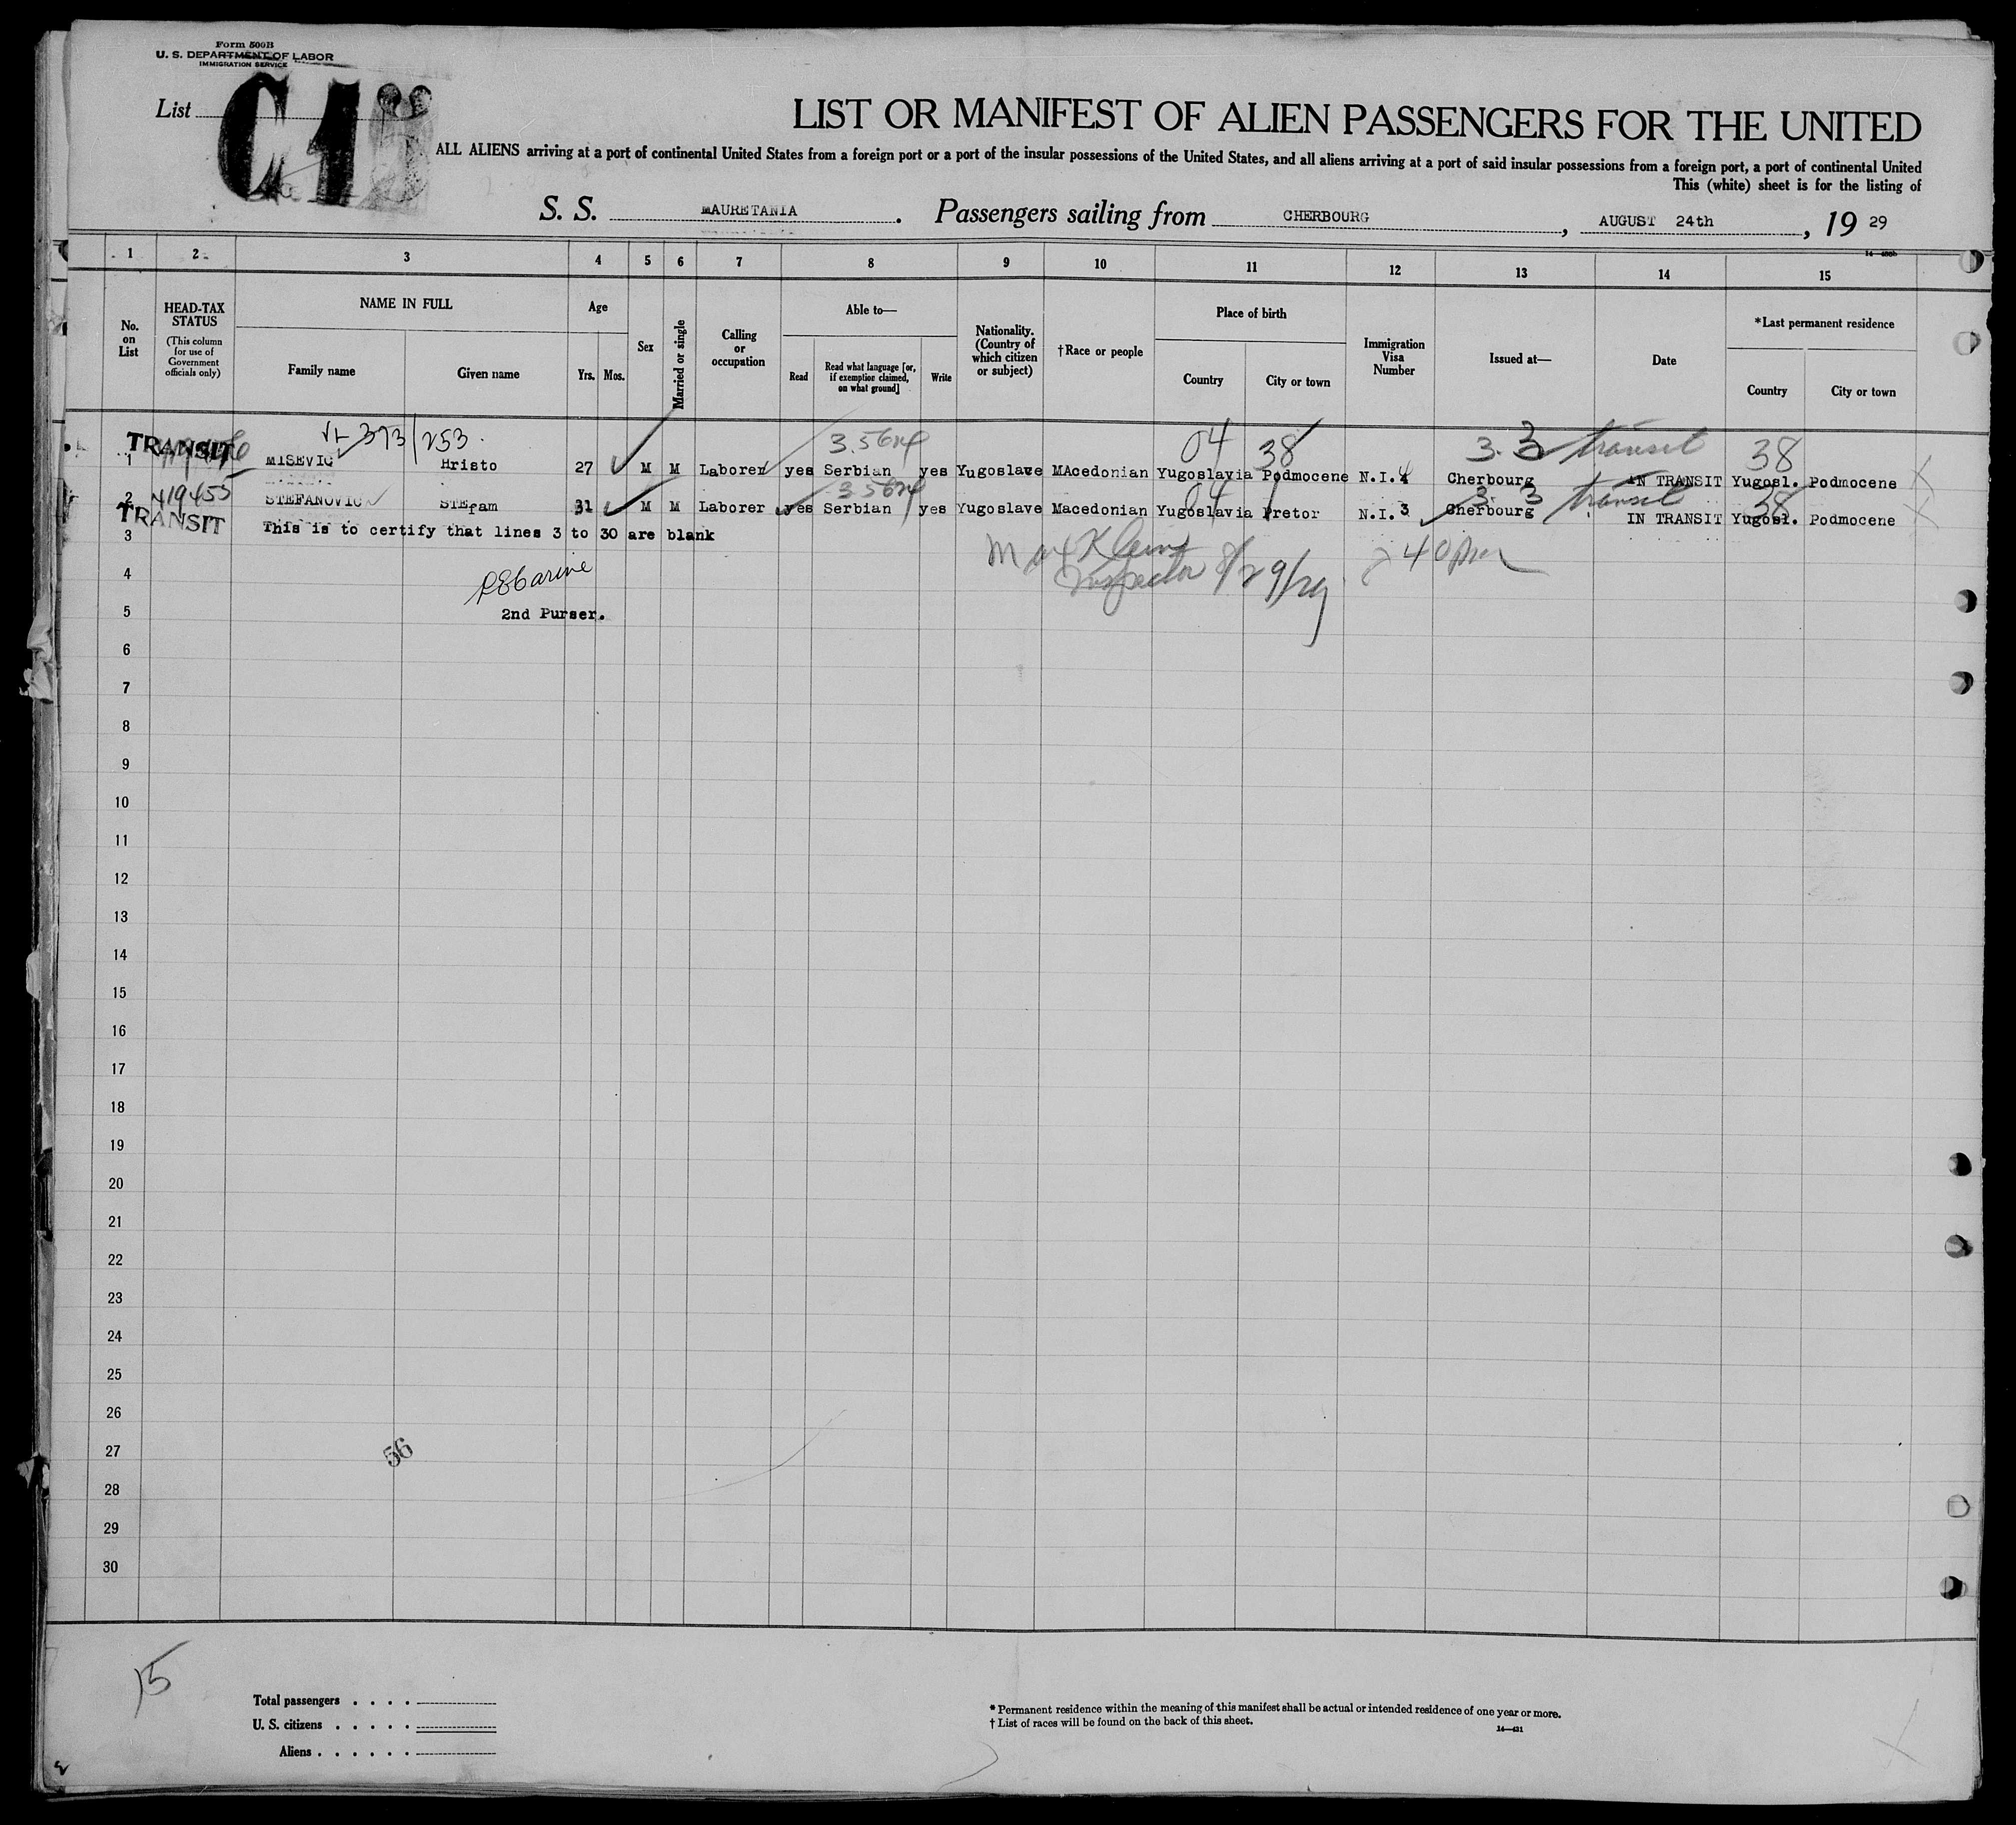 Form 500B
U. S. DEPARTMENT OF LABOR
IMMIGRATION SERVICE
List
LIST OR MANIFEST OF ALIEN PASSENGERS FOR THE UNITED
ALL ALIENS arriving at a port of continental United States from a foreign port or a port of the insular possessions of the United States, and all aliens arriving at a port of said insular possessions from a foreign port, a port of continental United
This (white) sheet is for the listing of
S. S. MAURETANIA. Passengers sailing from CHERBOURG, AUGUST 24th, 19 29
1 2 3 4 5 6 7 8 9 10 11 12 13 14 15
No. on List
HEAD-TAX STATUS
(This column for use of Government officials only)
NAME IN FULL
Family name Given name
Age
Yrs. Mos.
Sex
Married or single
Calling or occupation
Able to—
Read
Read what language [or, if exemption claimed, on what ground]
Write
Nationality. (Country of which citizen or subject)
†Race or people
Place of birth
Country City or town
Immigration Visa Number
Issued at—
Date
*Last permanent residence
Country City or town
373/253. 04 38 3.3 transit 38
TRANSIT
1 MISEVIC Hristo 27 M M Laborer yes Serbian yes Yugoslave MAcedonian Yugoslavia Podmocene N.I.4 Cherbourg IN TRANSIT Yugosl. Podmocene
419455 04 3.3 transit 38
2 STEFANOVIC STEfam 31 M M Laborer yes Serbian yes Yugoslave Macedonian Yugoslavia Pretor N.I.3 Cherbourg IN TRANSIT Yugosl. Podmocene
TRANSIT
3 This is to certify that lines 3 to 30 are blank
Max Klein
Inspector 8/29/29
4
2nd Purser.
5
6
7
8
9
10
11
12
13
14
15
16
17
18
19
20
21
22
23
24
25
26
27
56
28
29
30
15
Total passengers . . . .
U. S. citizens . . . . .
Aliens . . . . . .
* Permanent residence within the meaning of this manifest shall be actual or intended residence of one year or more.
† List of races will be found on the back of this sheet.
14—431